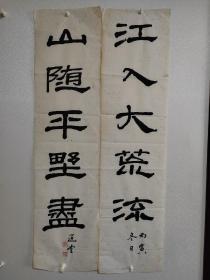 山随平野盡
江入大荒流
丙寅
冬日